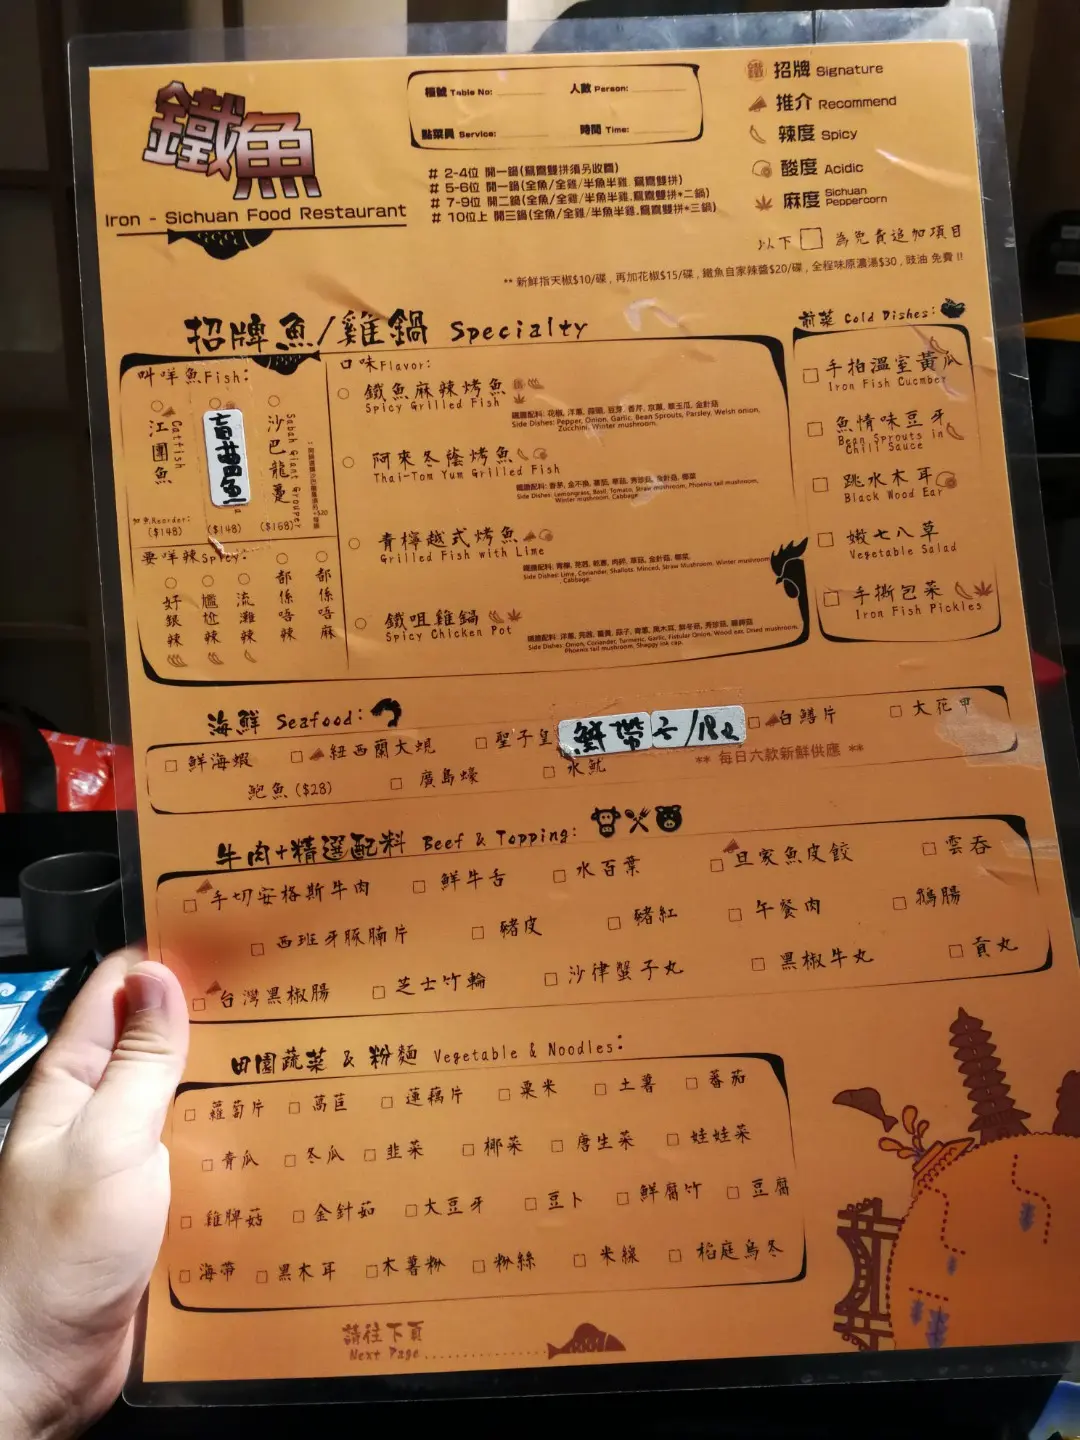 鐵魚
Iron - Sichuan Food Restaurant
檯號 Table No: 人數 Person:
點菜員 Service: 時間 Time:
# 2-4位 開一鍋(鴛鴦雙拼須另收費)
# 5-6位 開一鍋(全魚/全雞/半魚半雞, 鴛鴦雙拼)
# 7-9位 開二鍋(魚/全雞/半魚半雞,鴛鴦雙拼*二鍋)
# 10位上 開三鍋(全魚/全雞/半魚半雞,鴛鴦雙拼*三鍋)
鐵 招牌 Signature
推介 Recommend
辣度 Spicy
酸度 Acidic
麻度 Sichuan Peppercorn
以下 □ 為免費追加項目
** 新鮮指天椒$10/碟 , 再加花椒$15/碟 , 鐵魚自家辣醬$20/碟 , 全程味原濃湯$30 , 豉油 免費 !!
招牌魚/雞鍋 Specialty
叫咩魚Fish:
江團魚 Catfish
盲曹魚
沙巴龍躉 Sabah Giant Grouper
加魚Reorder:
($148) ($148) ($168)
要咩辣Spicy:
好銀辣
尷尬辣
流灘辣
都係唔辣
都係唔麻
口味Flavor:
鐵魚麻辣烤魚
Spicy Grilled Fish
Side Dishes: Pepper, Onion, Garlic, Bean Sprouts, Parsley, Welsh onion, Zucchini, Winter mushroom.
阿來冬蔭烤魚
Thai-Tom Yum Grilled Fish
Side Dishes: Lemongrass, Basil, Tomato, Straw mushroom, Phoenix tail mushroom, Winter mushroom, Cabbage
青檸越式烤魚
Grilled Fish with Lime
Side Dishes: Lime, Coriander, Shallots, Minced, Straw Mushroom, Winter mushroom, Cabbage
鐵咀雞鍋
Spicy Chicken Pot
Side Dishes: Onion, Coriander, Turmeric, Garlic, Fistular Onion, Wood ear, Dried mushroom, Phoenix tail mushroom, Shaggy ink cap.
前菜 Cold Dishes:
手拍溫室黃瓜
Iron Fish Cucmber
魚情味豆牙
Bean Sprouts in
Chili Sauce
跳水木耳
Black Wood Ear
嫩七八草
Vegetable Salad
手撕包菜
Iron Fish Pickles
海鮮 Seafood:
鮮海蝦 紐西蘭大蜆 聖子皇 鮮帶子/18 白鱔片 大花甲
鮑魚($28) 廣島蠔 水魷 ** 每日六款新鮮供應 **
牛肉+精選配料 Beef & Topping:
手切安格斯牛肉 鮮牛舌 水百葉 旦家魚皮餃 雲吞
西班牙豚腩片 豬皮 豬紅 午餐肉 鵝腸
台灣黑椒腸 芝士竹輪 沙律蟹子丸 黑椒牛丸 貢丸
田園蔬菜 & 粉麵 Vegetable & Noodles:
蘿蔔片 萵苣 蓮藕片 粟米 土薯 番茄
青瓜 冬瓜 韭菜 椰菜 唐生菜 娃娃菜
雞髀菇 金針茹 大豆牙 豆卜 鮮腐竹 豆腐
海帶 黑木耳 木薯粉 粉絲 米線 稻庭烏冬
請往下頁
Next Page